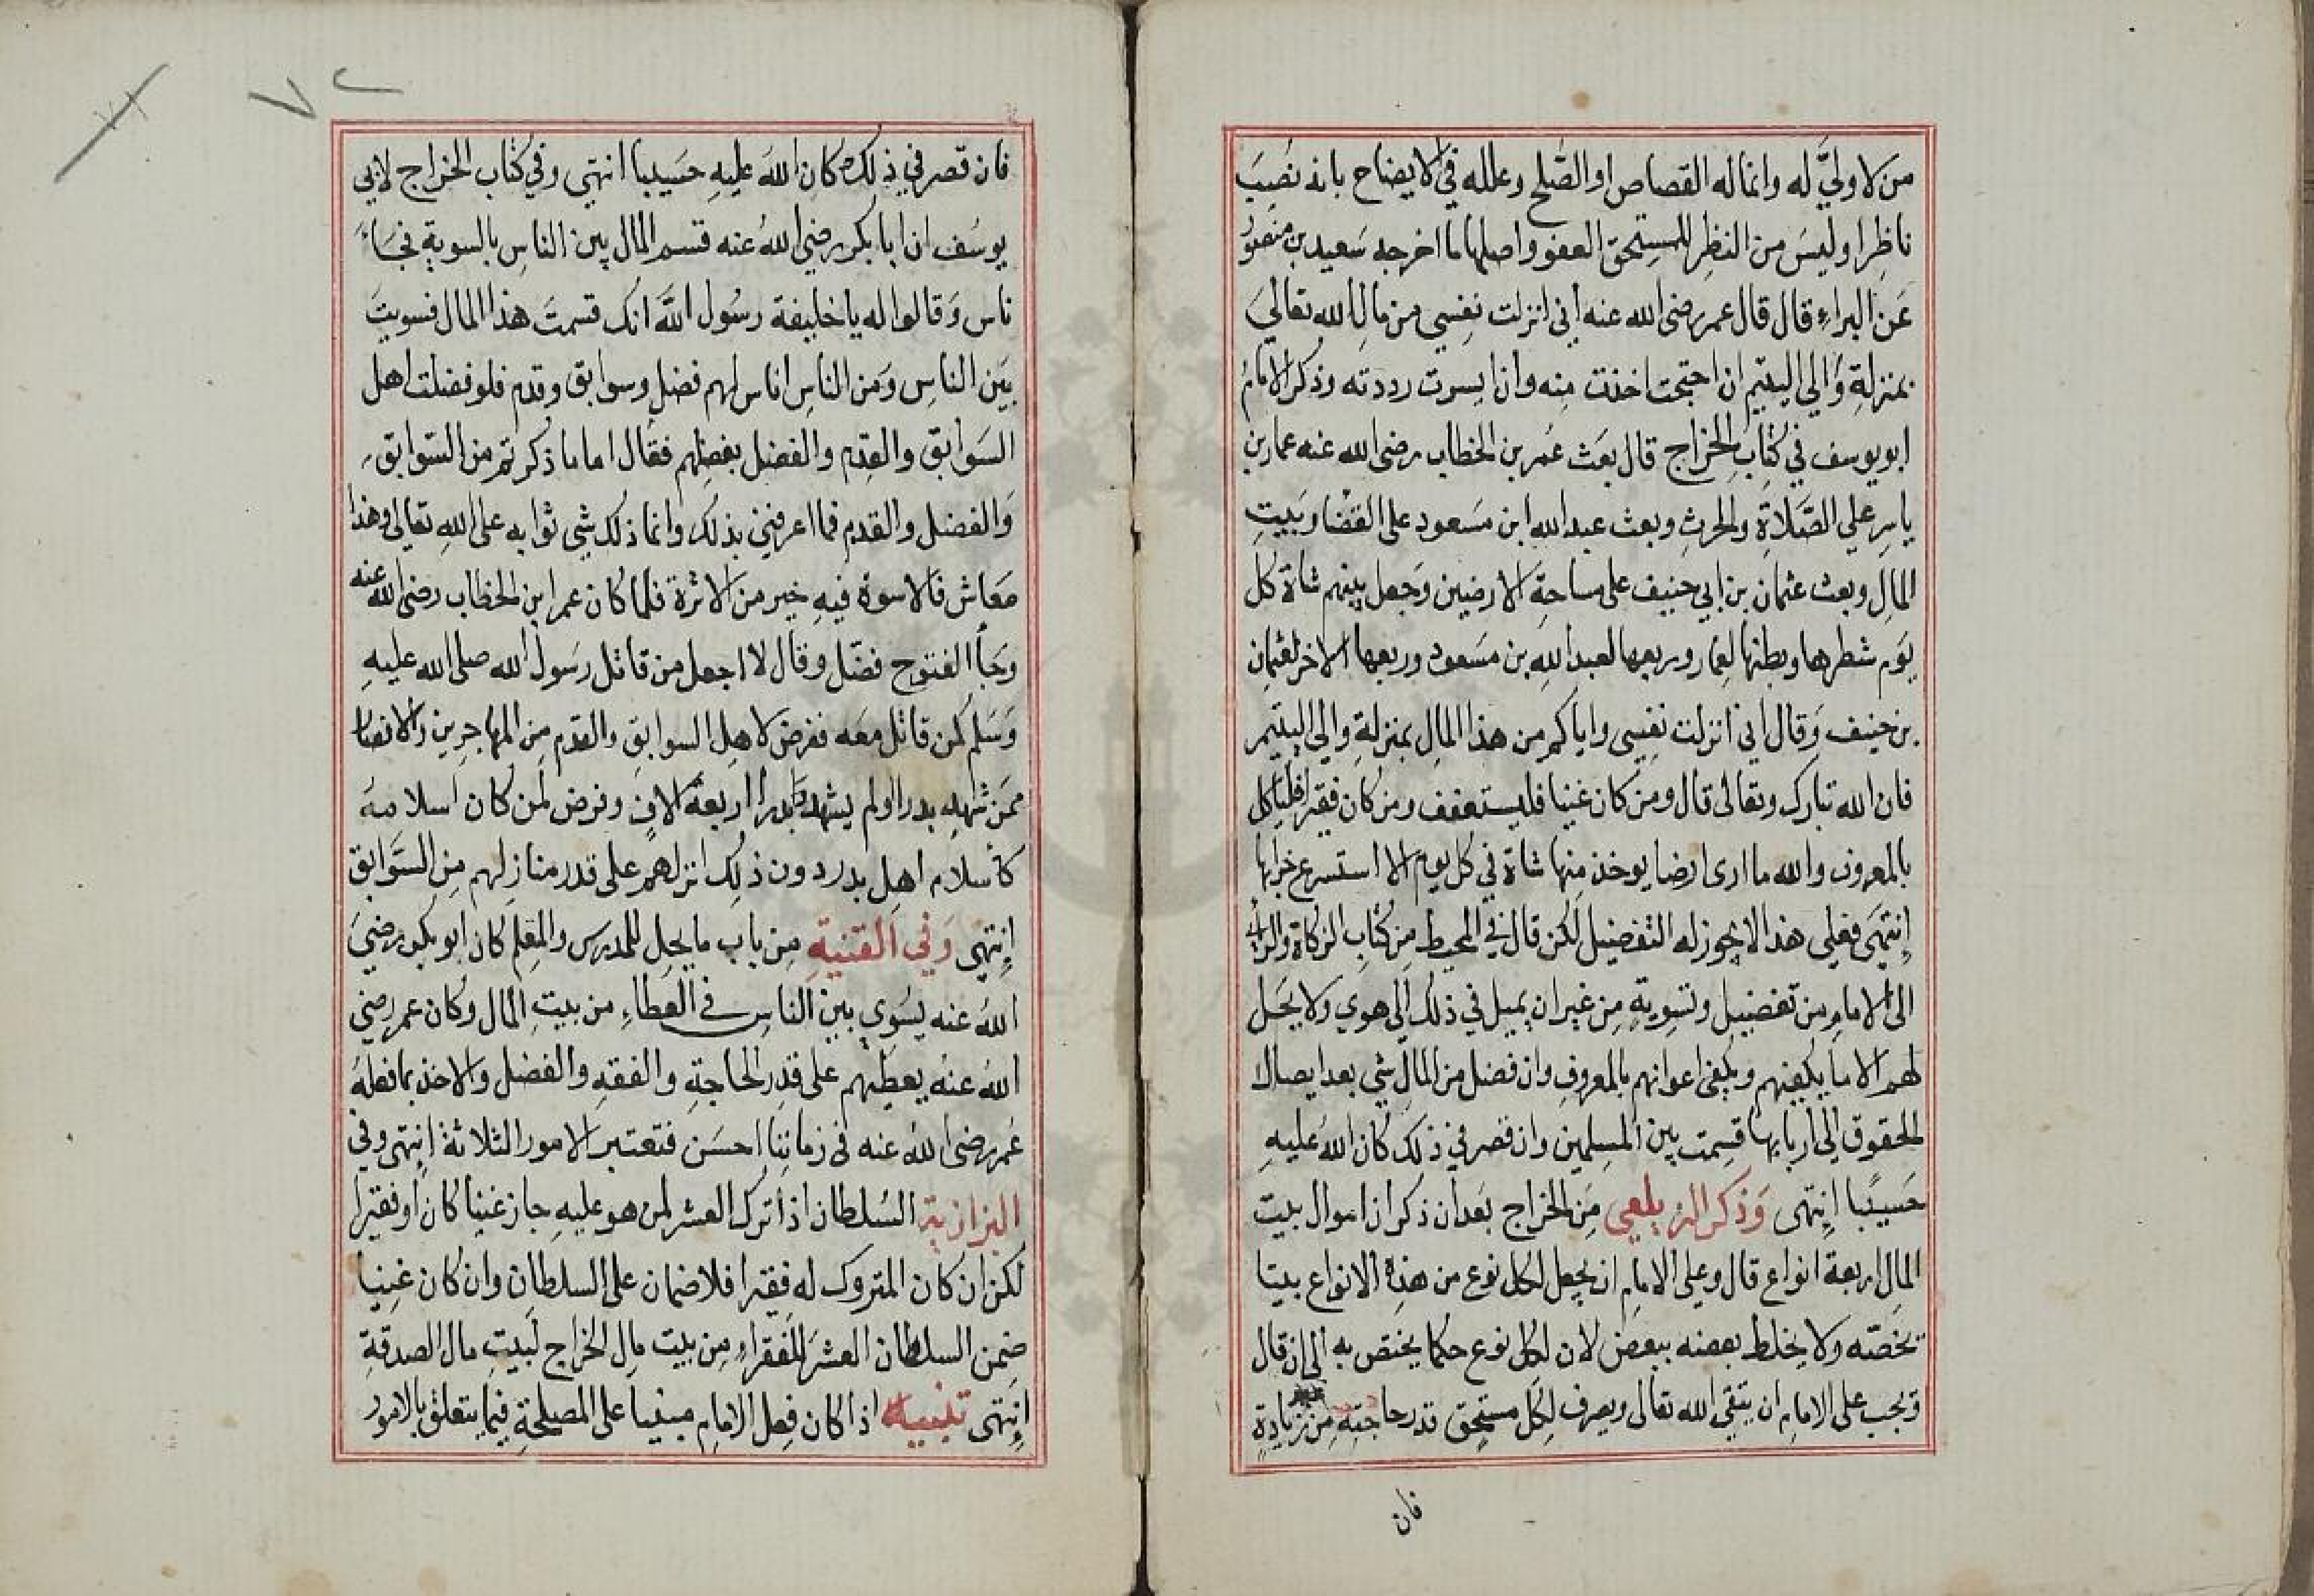 من لا ولي له وانما له القصاص او الصلح وعلله في الايضاح بانه نصيب
ناظرا وليس من النظر للمستحق العفو واصلها ما اخرجه سعيد بن منصور
عن البراء قال قال عمر رضى الله عنه اني انزلت نفسي من مال الله تعالي
بمنزلة والي اليتيم ان احتجت اخذت منه وان ايسرت رددته وذكر الامام
ابو يوسف في كتاب الخراج قال بعث عمر بن الخطاب رضى الله عنه عمار بن
ياسر علي الصلاة والحرث وبعث عبد الله ابن مسعود على القضا وبيت
المال وبعث عثمان بن ابي حنيف على مساحة الارضين وجعل بينهم شاة كل
يوم شطرها وبطنها لعمار وربعها لعبد الله بن مسعود وربعها الاخر لعثمان
بن حنيف وقال اني انزلت نفسي واياكم من هذا المال بمنزلة والي اليتيم
فان الله تبارك وتعالى قال ومن كان غنيا فليستعفف ومن كان فقيرا فلياكل
بالمعروف والله ما ارى ارضا يوخذ منها شاة في كل يوم الا استسرع خرابها
انتهى فعلى هذا لا يجوز له التفضيل لكن قال في المحيط من كتاب الزكاة والراي
الى الامام من تفضيل وتسوية من غير ان يميل في ذلك الى هوي ولا يحل
لهم الا ما يكفيهم ويكفى اعوانهم بالمعروف وان فضل من المال شي بعد ايصال
الحقوق الي اربابها قسمت بين المسلمين وان قصر في ذلك كان الله عليه
حسيبا انتهى وذكر الزيلعي من الخراج بعد ان ذكر ان اموال بيت
المال اربعة انواع قال وعلى الامام ان يجعل لكل نوع من هذه الانواع بيتا
يخصه ولا يخلط بعضه ببعض لان لكل نوع حكما يختص به الى ان قال
ويجب على الامام ان يتقي الله تعالى ويصرف لكل مستحق قدر حاجته من زيادة
فان
٧٢
فان قصر في ذلك كان الله عليه حسيبا انتهى وفي كتاب الخراج لابي
يوسف ان ابا بكر رضي الله عنه قسم المال بين الناس بالسوية فجاء
ناس وقالوا له يا خليفة رسول الله انك قسمت هذا المال فسويت
بين الناس ومن الناس اناس لهم فضل وسوابق وقدم فلو فضلت اهل
السوابق والقدم والفضل بفضلهم فقال اما ما ذكرتم من السوابق
والفضل والقدم فما اعرفني بذلك وانما ذلك شي ثوابه على الله تعالى وهذا
معاش فالاسوة فيه خير من الاثرة فلما كان عمر ابن الخطاب رضى الله عنه
وجا الفتوح فضل وقال لا اجعل من قاتل رسول الله صلى الله عليه
وسلم كمن قاتل معه ففرض لاهل السوابق والقدم من المهاجرين والانصار
ممن شهد بدرا او لم يشهد بدرا اربعة الاف وفرض لمن كان اسلامه
كاسلام اهل بدر دون ذلك انزلهم على قدر منازلهم من السوابق
انتهى وفي القنية من باب ما يحل للمدرس والمعلم كان ابو بكر رضي
الله عنه يسوي بين الناس في العطاء من بيت المال وكان عمر رضي
الله عنه يعطيهم على قدر الحاجة والفقه والفضل والاخذ بما فعله
عمر رضى الله عنه فى زماننا احسن فتعتبر الامور الثلاثة انتهى وفي
البزازية السلطان اذا ترك العشر لمن هو عليه جاز غنيا كان او فقيرا
لكن ان كان المتروك له فقيرا فلا ضمان على السلطان وان كان غنيا
ضمن السلطان العشر للفقراء من بيت مال الخراج لبيت مال الصدقة
انتهى تنبيه اذا كان فعل الامام مبنيا على المصلحة فيما يتعلق بالامور